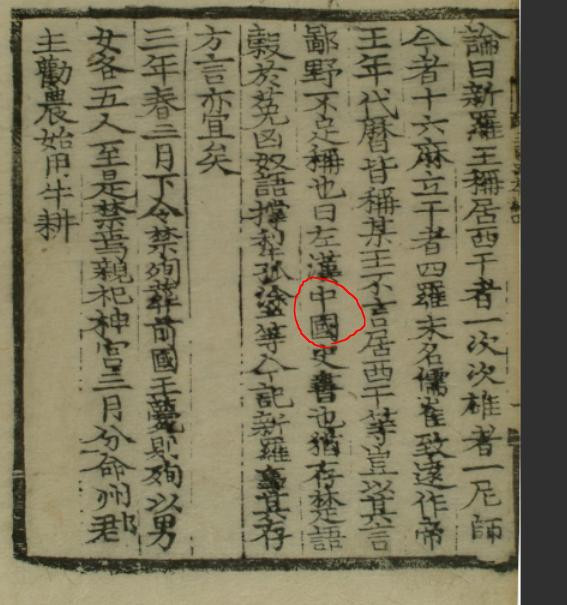 論曰新羅王稱居西干者一次次雄者一尼師
今者十六麻立干者四羅末名儒崔致遠作帝
王年代曆皆稱某王不言居西干等豈以其言
鄙野不足稱也曰左漢中國史書也猶存楚語
穀於菟匈奴語撑犁孤塗等今記新羅事其存
方言亦宜矣
三年春二月下令禁殉葬前國王薨則殉以男
女各五人至是禁焉親祀神宮三月分命州郡
主勸農始用牛耕